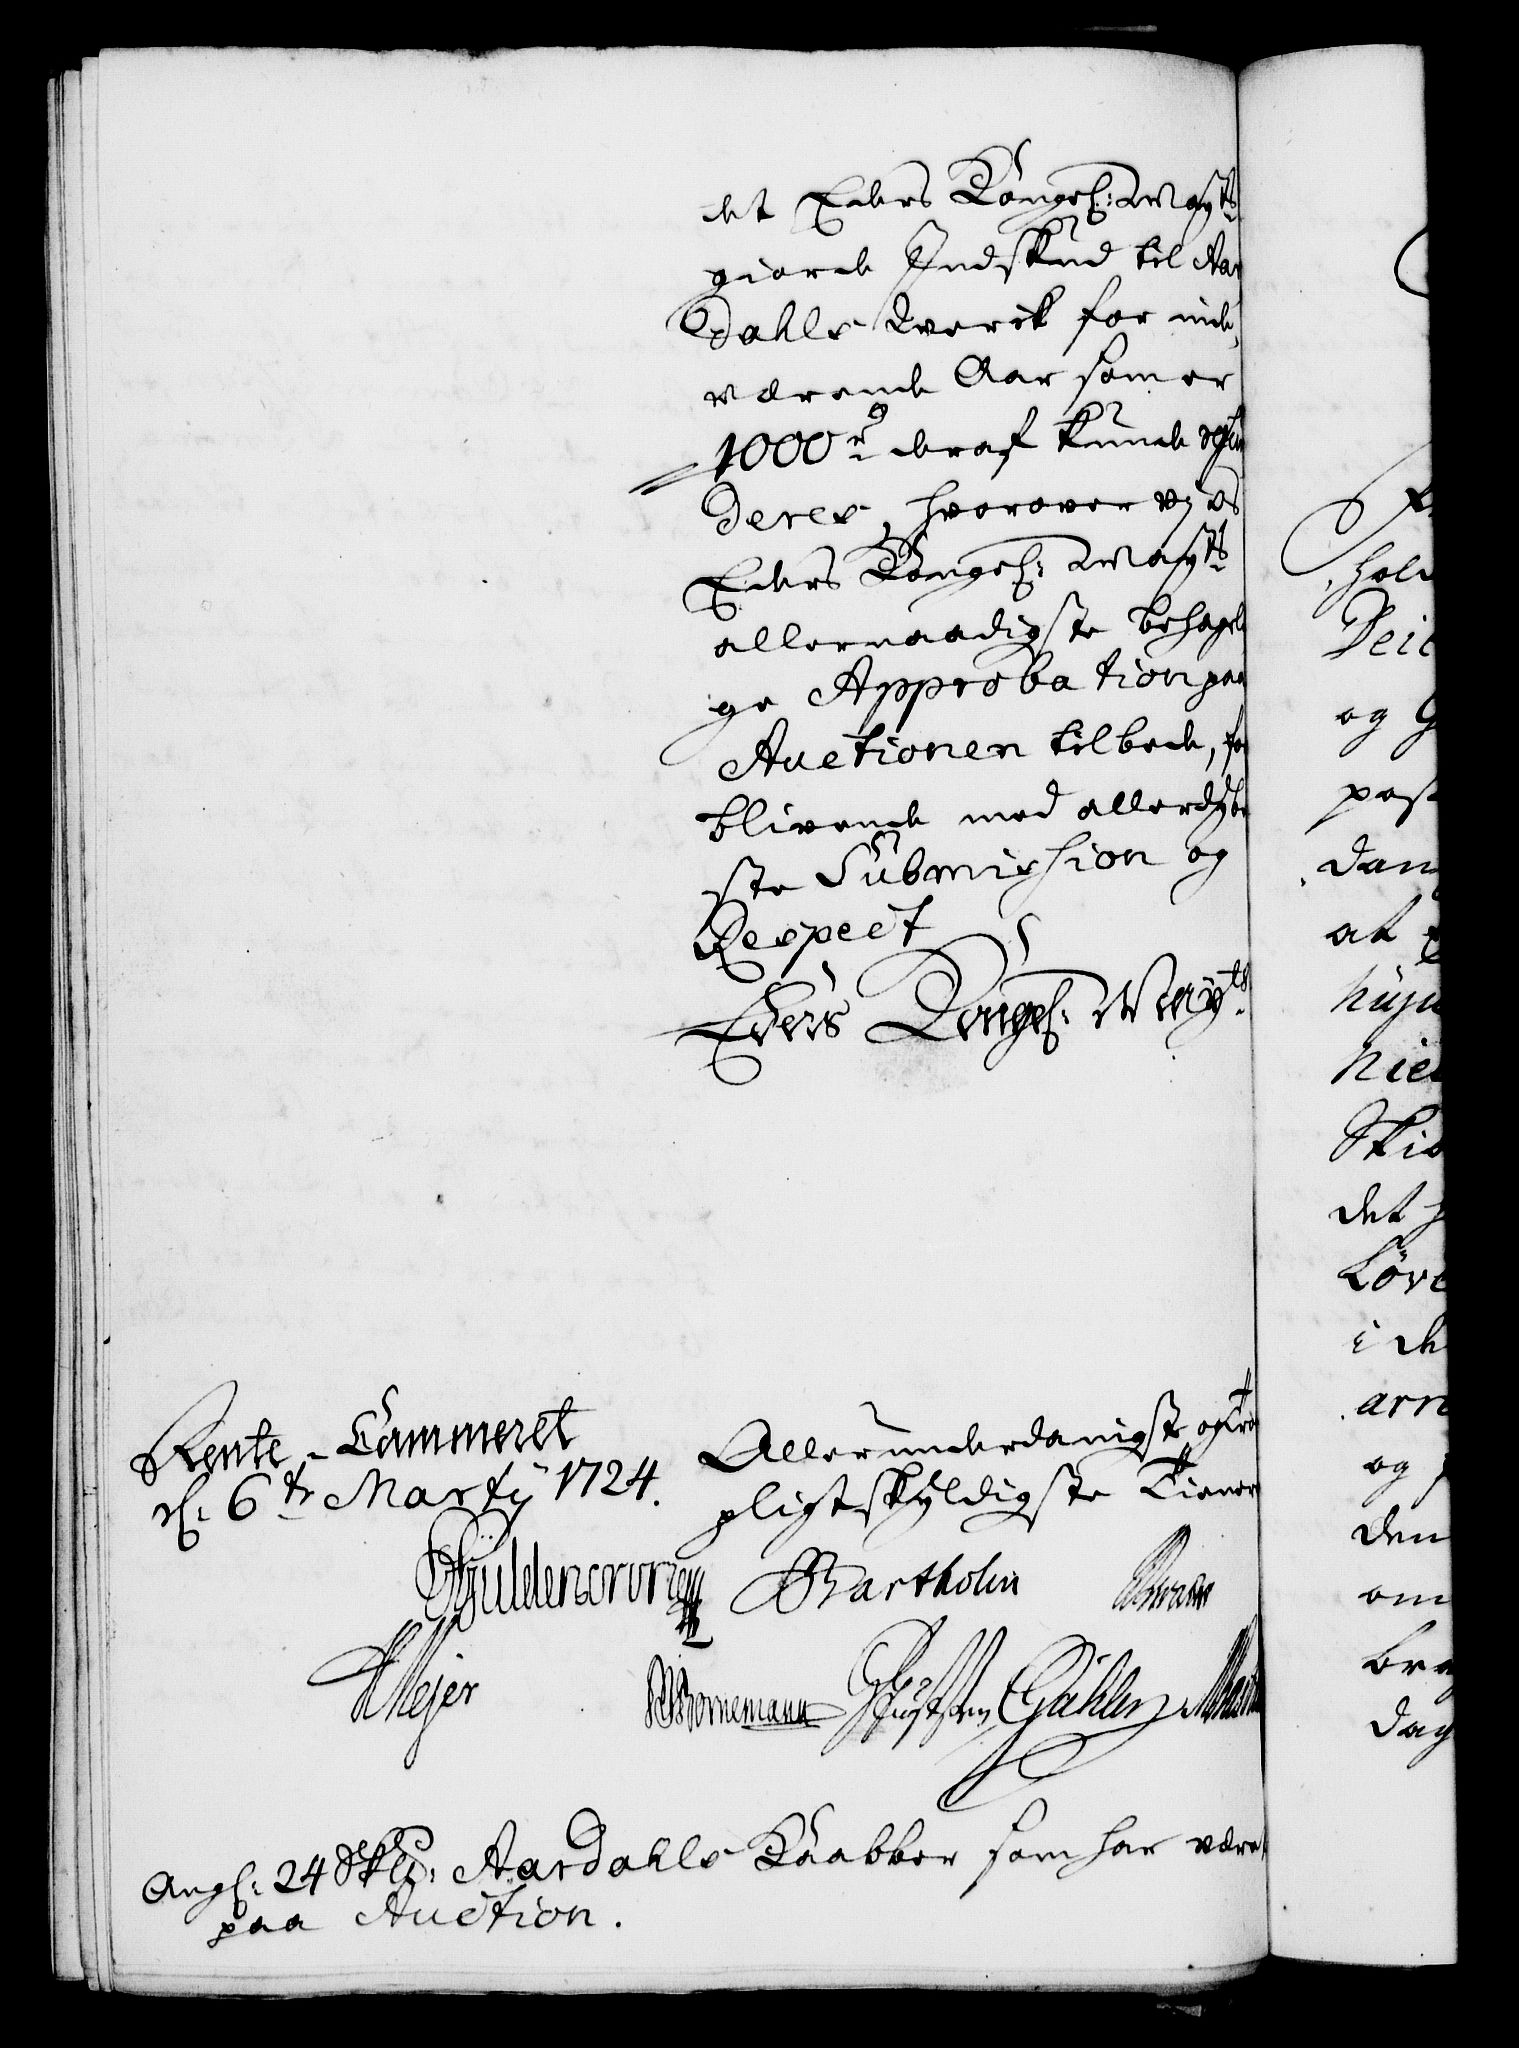 det Eders Kongel: Mayts
giorde Indskud til Aar
Dahls Werck for inde,
værende Aar som er
1000 rd deraf kunde
deres, hvorover vj os
Eders Kongel: Mayts
allernaadigste behageli
ge Approbation paa
Auctionen tilbede, for
blivende med allerdybe
ste Submission og
Respect
Eders Kongel: Mayts
Rente-Cammeret
d: 6te Martij 1724.
Allerunderdanigst og tro
pligtskyldigste Tienere
Güldencrone Bartholin
Mejer Bornemann Gähler
Ang: 24 Skp: Aardahls Kaabber som har været
paa Auction.
og
at
det
Löve
og
den
om
dag